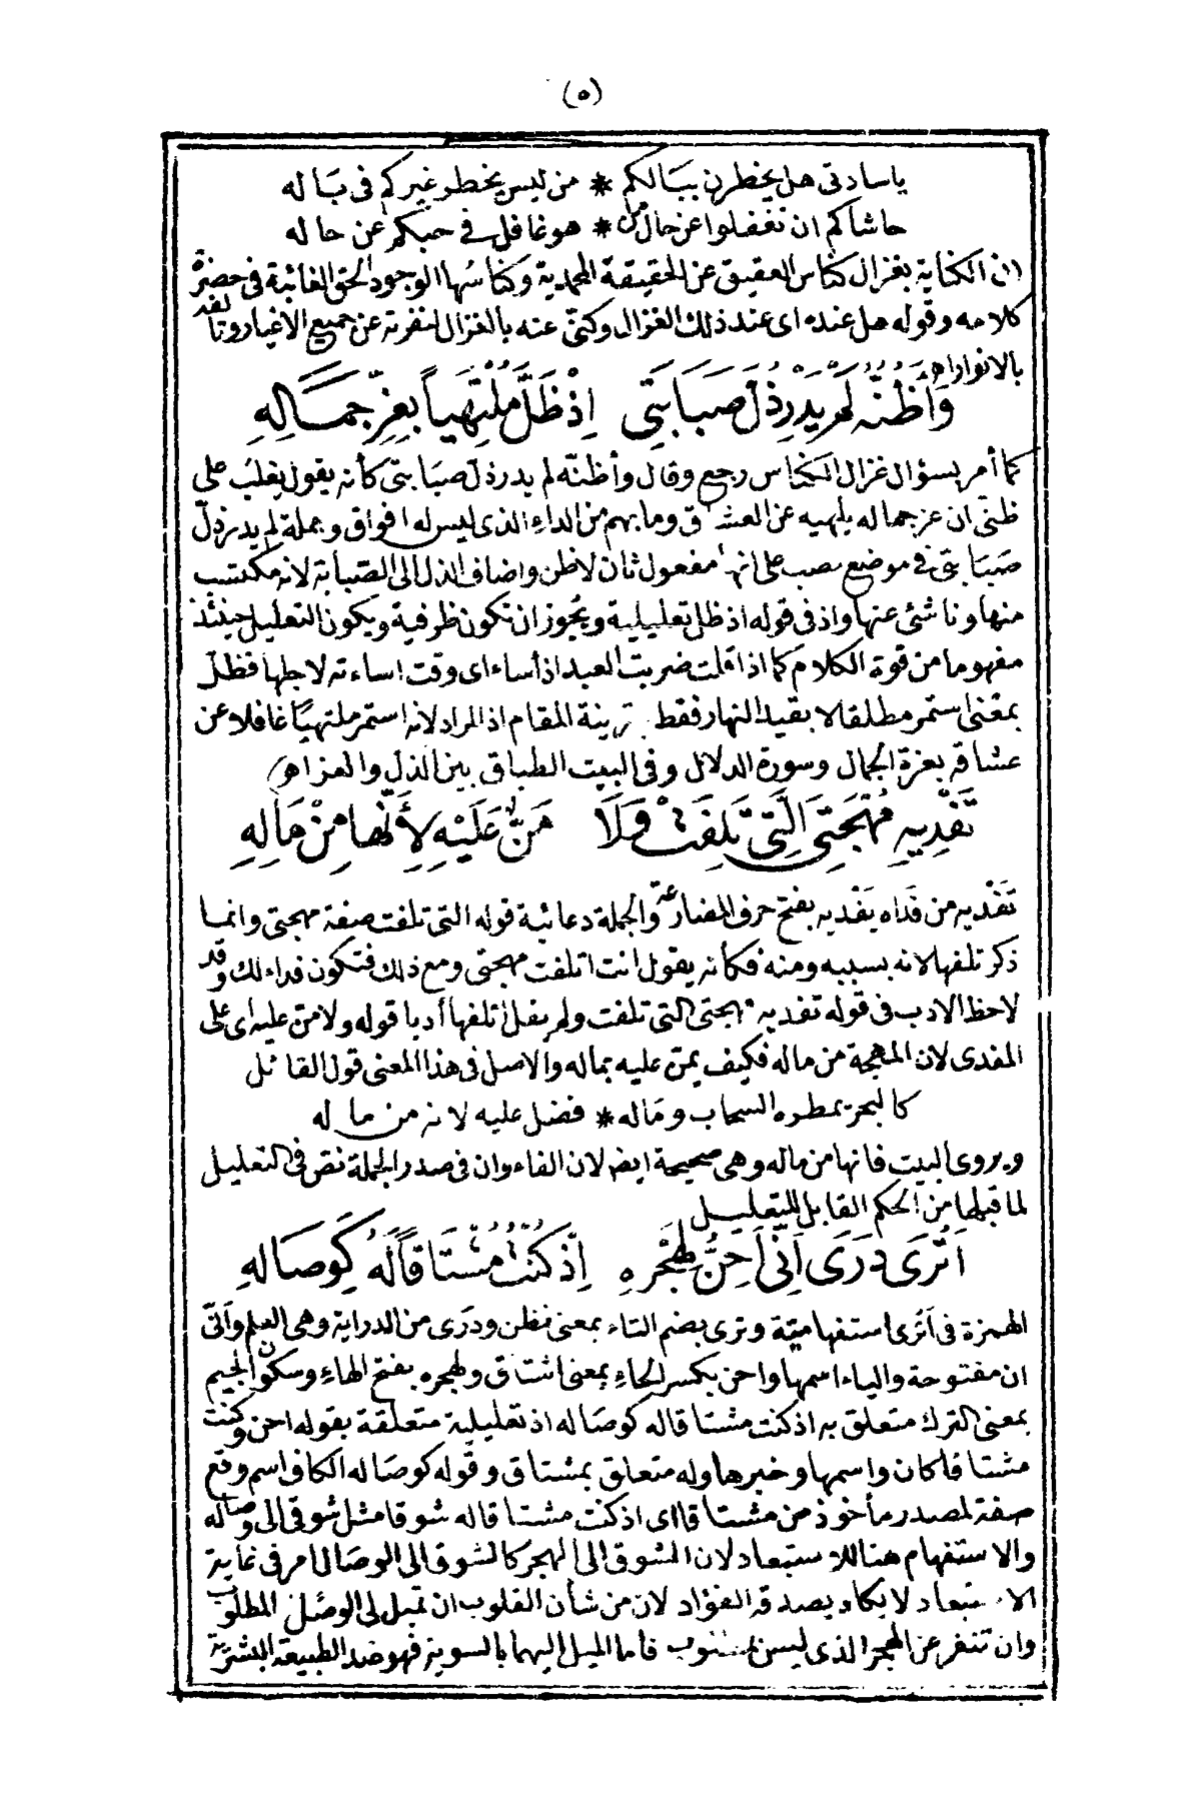 (٥)
ياسادتى هل يخطرن ببالكم * من ليس يخطر غيركم فى بَاله
حاشاكم ان تغفلوا عن حال من * هو غافل فى حبكم عن حاله
ان الكناية بغزال كناس العقيق عن الحقيقة المحمدية وكناسُها الوجود الحق الغائبة فى حضرة
كلامه وقوله هل عنده اى عند ذلك الغزال وكنىّ عنه بالغزال لنفرته عن جميع الاغيار وتألفه
بالانوار اهـ
وَأَظُنُّهُ لَمْ يَدْرِ ذُلَّ صَبَابَتِى إِذْ ظَلَّ مُلْتَهِياً بِعِزِّ جَمَالِهِ
كما أمر بسؤال غزال الكناس رجع وقال وأظنّه لم يدر ذلّ صبَابتى كأنه يقول يغلبُ على
ظنى ان عز جماله يلهيه عن العشاق وما بهم من الداءِ الذى ليس له افواق وجملة لم يدر ذلّ
صَبَابتى فى موضع نصب على انها مفعول ثان لاظن واضاف الذل الى الصّبابة لانه مكتسب
منها وناشئ عنها واذ فى قوله اذ ظل تعليلية ويجُوز ان تكون ظرفية ويكون التعليل حينئذ
مفهوما من قوة الكلام كما اذا قلت ضربت العبد اذ أساء اى وقت اساءته لاجلها فظلّ
بمعَنى استمر مطلقا لا بقيد النهار فقط بقرينة المقام اذ المراد لانه استمر ملتهيًا غافلا عن
عشاقه بعزة الجمال وسورة الدلال وفى البيت الطباق بين الذل والعز اهـ
تَفْدِيهِ مُهْجَتِىَ الَّتِى تَلِفَتْ وَلَا مَنٌّ عَلَيْهِ لِأَنَّها مِنْ مَالِهِ
تَفْديه من فَداه يَفْديه بفتح حرف المضارعة والجملة دعائية قوله التى تلفت صفة مهجتى وانما
ذكر تلفها لانه بسببه ومنه فكانه يقول انت اتلفت مهجتى ومع ذلك فتكون فداء لك وقد
لاحظ الادب فى قوله تفديه مهجتى التى تلفت ولم يقل اتلفها أدبا قوله ولا منّ عليه اى على
المفدى لان المهجة من ماله فكيف يمنّ عليه بماله والاصل فى هذا المعنى قول القائل
كالبحر يمطره السحاب وماله * فضل عليه لانه من ماله
ويروى البيت فانها من ماله وهى صحيحة ايضا لان الفاء وان فى صدر الجملة نص فى التعليل
لما قبلها من الحكم القابل للتعليل
أَتُرَى دَرَى أَنِّى أَحِنُّ لِهَجْرِهِ إِذْ كُنْتُ مُشْتَاقًا لَهُ كَوِصَالِهِ
الهمزة فى أتُرى استفهاميّة وترى بضم التاء بمعنى تظن ودَرَى من الدراية وهى العلم وأنىّ
ان مفتوحة والياء اسمها واحن بكسر الحاءِ بمعنى اشتاق ولهجره بفتح الهاءِ وسكون الجيم
بمعنى الترك متعلق به اذ كنت مشتاقا له كوصَاله اذ تعليلية متعلقة بقوله احن وكنت
مشتاقا كان واسمها وخبرها وله متعلق بمشتاق وقوله كوصَاله الكاف اسم وقع
صفة لمصدر مأخوذ من مشتاقا اى اذ كنت مشتاقا له شوقا مثل شوقى الى وصاله
والاستفهام هنا للاستبعاد لان الشوق الى الهجر كالشوق الى الوصَال امر فى غاية
الاستبعاد لا يكاد يصدقه الفؤاد لان من شأن القلوب ان تميل الى الوصَل المطلوب
وان تنفر عن الهجر الذى ليس بمحبوب فاما الميل اليهما بالسوية فهو ضد الطبيعة البشريّة